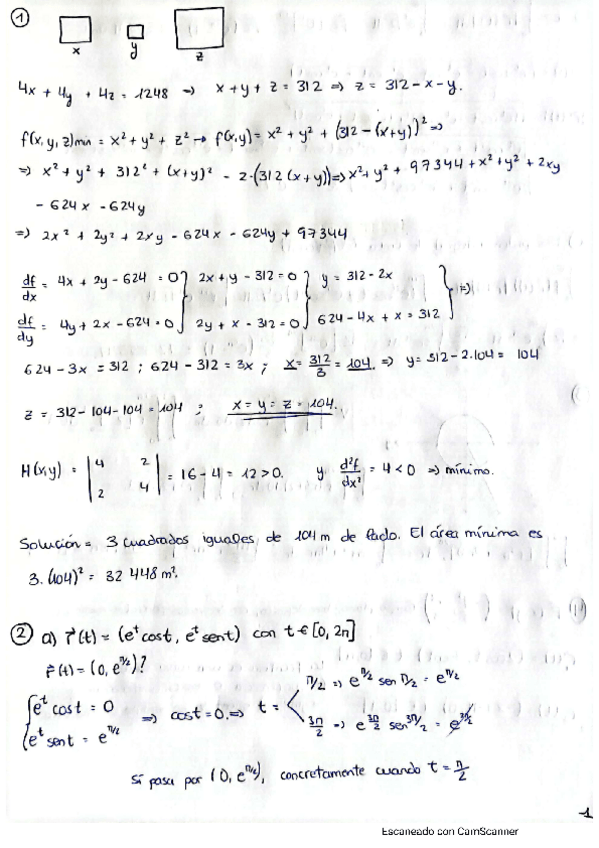 ①
x y z
4x + 4y + 4z = 1248 => x + y + z = 312 => z = 312 - x - y.
f(x, y, z)min = x² + y² + z² → f(x,y) = x² + y² + (312 - (x+y))² =>
=> x² + y² + 312² + (x+y)² - 2·(312 (x+y)) => x² + y² + 97344 + x² + y² + 2xy
- 624x - 624y
=> 2x² + 2y² + 2xy - 624x - 624y + 97344
df/dx = 4x + 2y - 624 = 0 } 2x + y - 312 = 0 } y = 312 - 2x } =>
df/dy = 4y + 2x - 624 = 0 } 2y + x - 312 = 0 } 624 - 4x + x = 312
624 - 3x = 312 ; 624 - 312 = 3x ; x = 312/3 = 104. => y = 312 - 2·104 = 104
z = 312 - 104 - 104 = 104 ; x = y = z = 104.
H(x,y) = | 4 2 | = 16 - 4 = 12 > 0. y d²f/dx² = 4 < 0 => mínimo.
| 2 4 |
Solución = 3 cuadrados iguales de 104 m de lado. El área mínima es
3·(104)² = 32 448 m².
② a) r⃗(t) = (eᵗ cost, eᵗ sent) con t ∈ [0, 2π]
r⃗(t) = (0, e^π/2)?
{ eᵗ cost = 0 => cost = 0. => t = < π/2 => e^π/2 sen π/2 = e^π/2
{ eᵗ sent = e^π/2 3π/2 => e^3π/2 sen 3π/2 = e^3π/2
Sí pasa por (0, e^π/2), concretamente cuando t = π/2
1
Escaneado con CamScanner